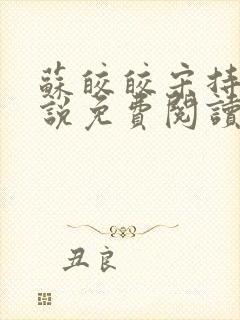 蘇皎皎宋持
說免費閱讀
丑良